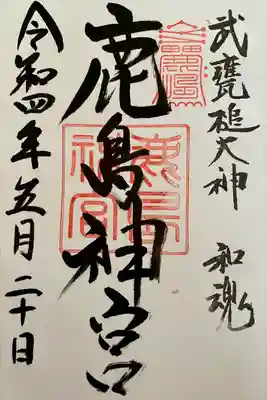 武甕槌大神 和魂
鹿嶋神宮
令和四年五月二十日
鹿島神宮